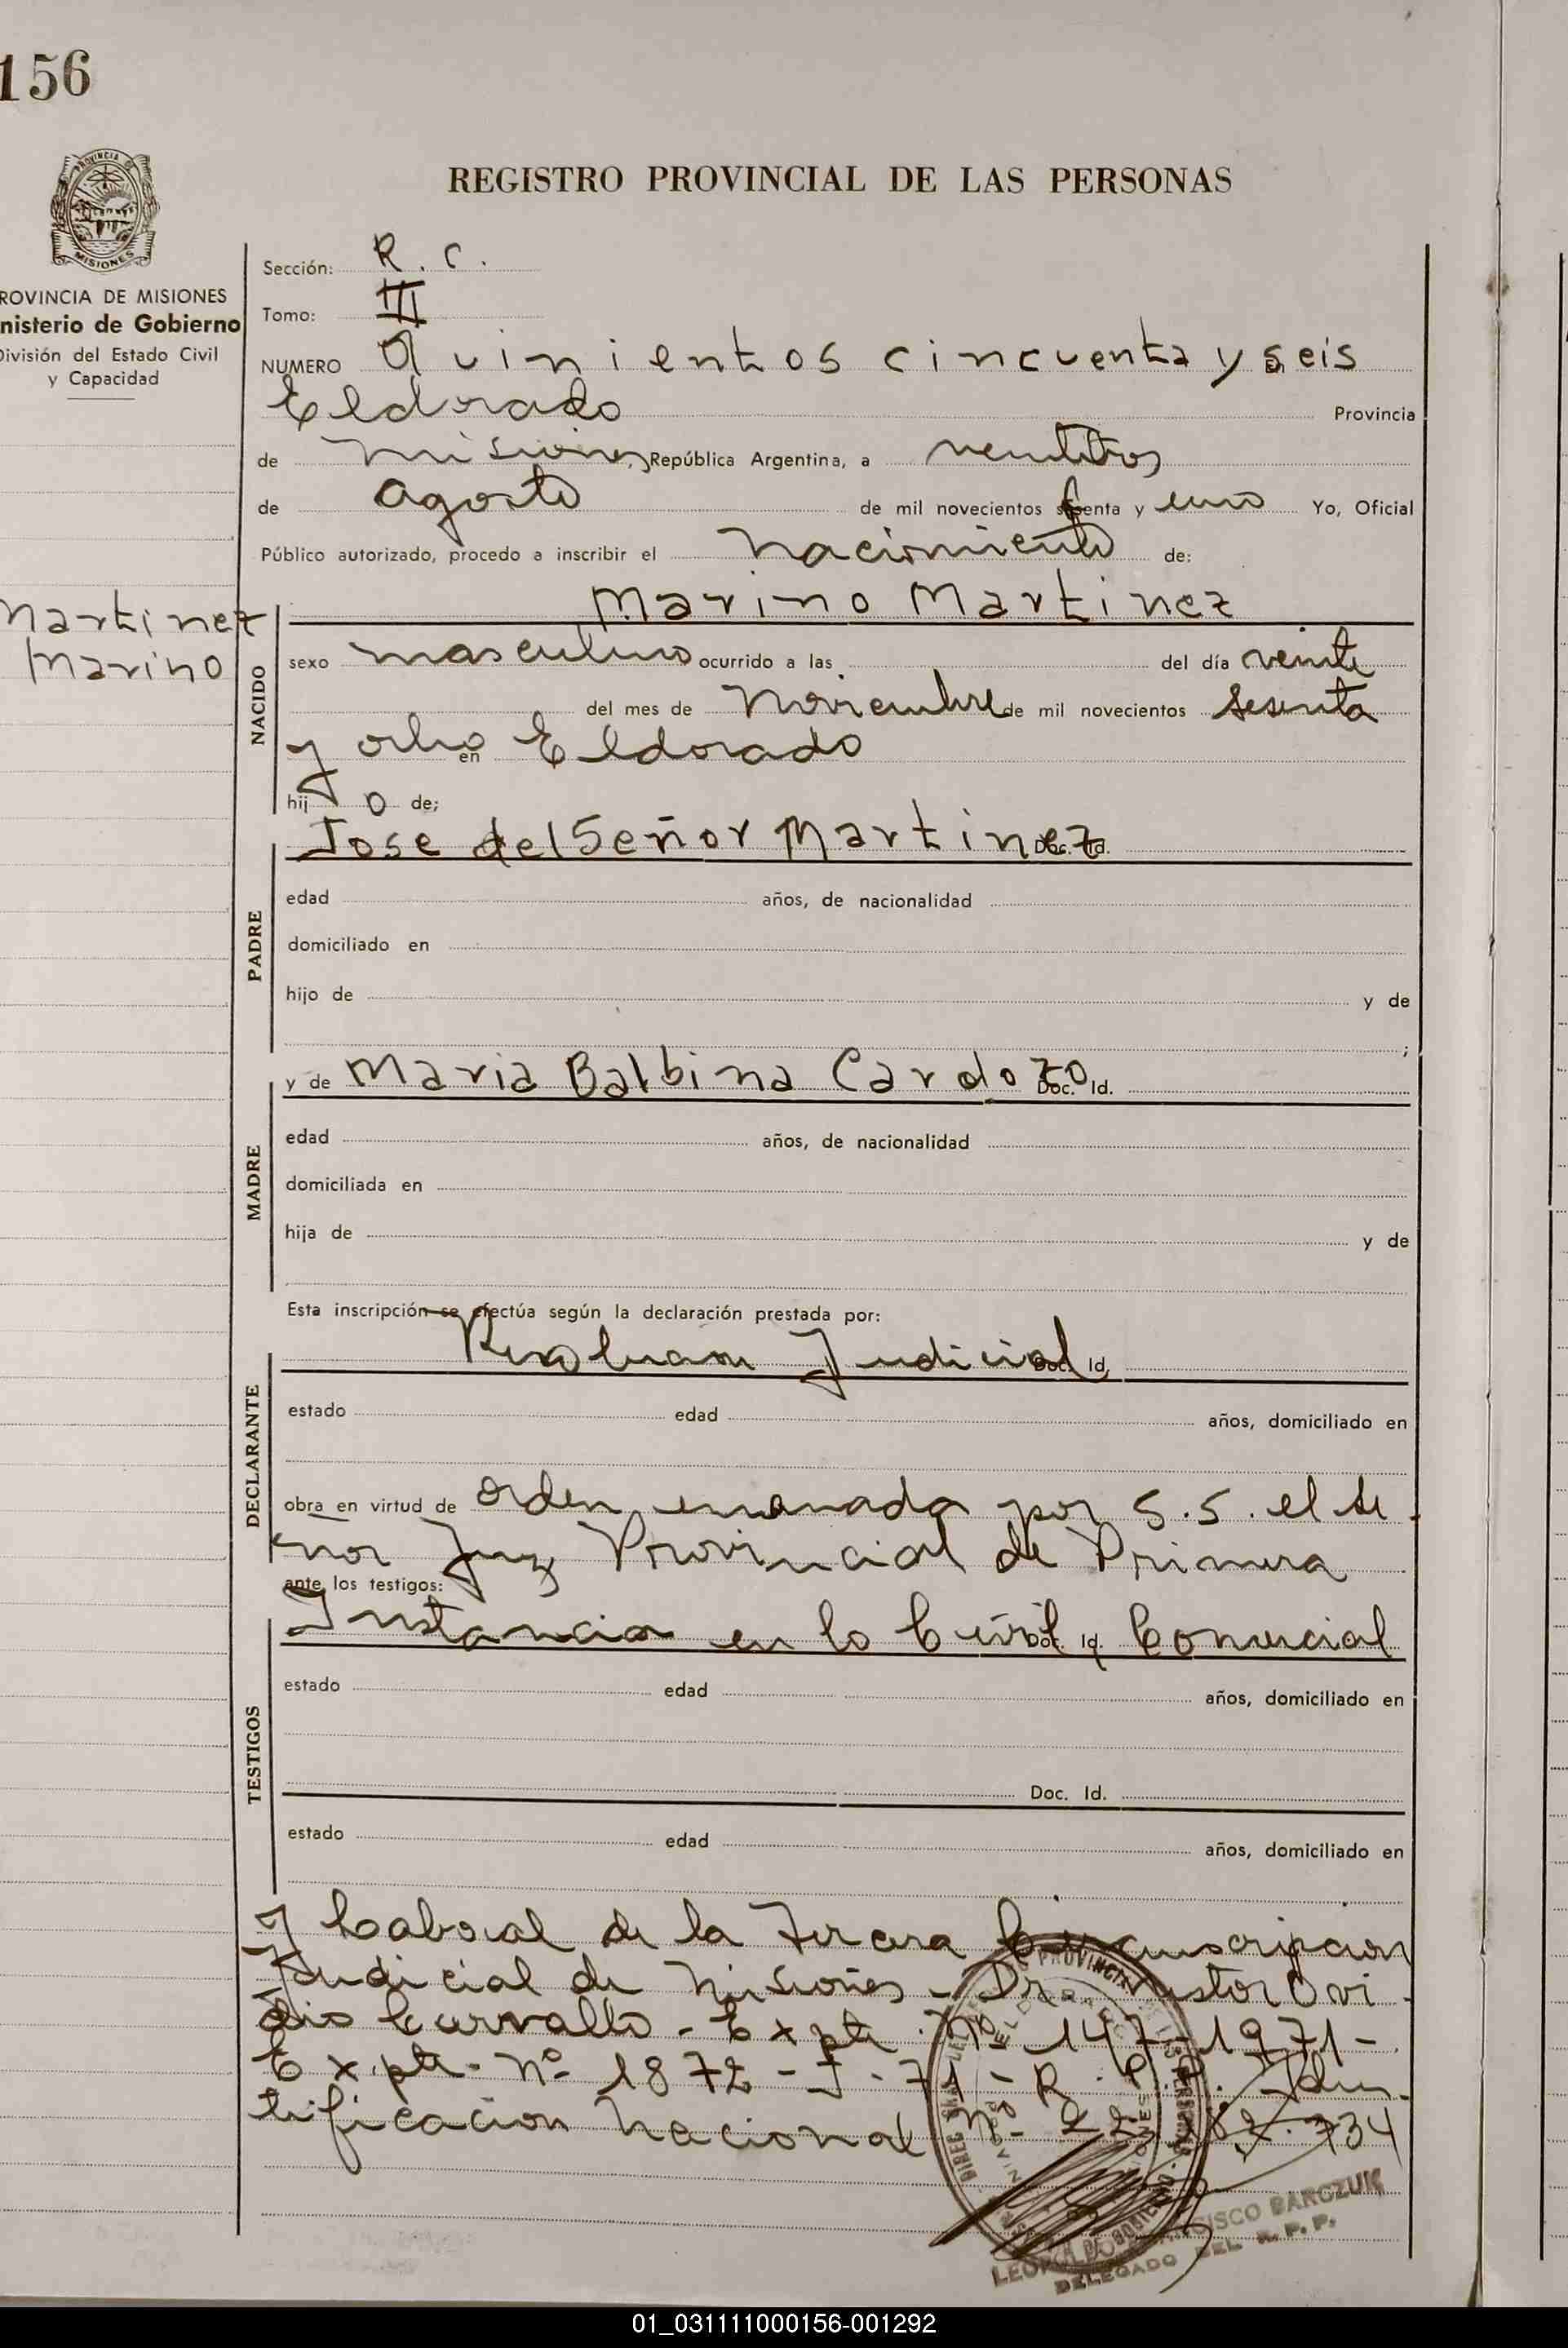 156
REGISTRO PROVINCIAL DE LAS PERSONAS
PROVINCIA DE
MISIONES
ROVINCIA DE MISIONES
nisterio de Gobierno
División del Estado Civil
y Capacidad
Sección: R. C.
Tomo: III
NUMERO Quinientos cincuenta y seis
Eldorado Provincia
de Misiones, República Argentina, a veintitres
de agosto de mil novecientos setenta y uno Yo, Oficial
Público autorizado, procedo a inscribir el nacimiento de:
Marino Martinez
Martinez
Marino
NACIDO
sexo masculino ocurrido a las del día veinte
del mes de Noviembre de mil novecientos sesenta
y ocho en Eldorado
hij o de;
Jose del Señor Martinez Doc. Id.
PADRE
edad años, de nacionalidad
domiciliado en
hijo de y de
;
y de Maria Balbina Cardozo Doc. Id.
MADRE
edad años, de nacionalidad
domiciliada en
hija de y de
Esta inscripción se efectúa según la declaración prestada por:
Resolucion Judicial Doc. Id.
DECLARANTE
estado edad años, domiciliado en
obra en virtud de orden emanada por S.S. el se
ñor Juez Provincial de Primera
ante los testigos:
Instancia en lo Civil Doc. Id. Comercial
TESTIGOS
estado edad años, domiciliado en
Doc. Id.
estado edad años, domiciliado en
y Laboral de la Tercera Circunscripcion
Judicial de Misiones - Dr. Nestor Ovi
dio Carvallo - Expte. Nº 147-1971-
Expte. Nº 1872-J-71-R.P.P. Iden
tificacion Nacional Nº 734
LEOPOLDO FRANCISCO BARCZUK
DELEGADO DEL R. P. P.
01_031111000156-001292